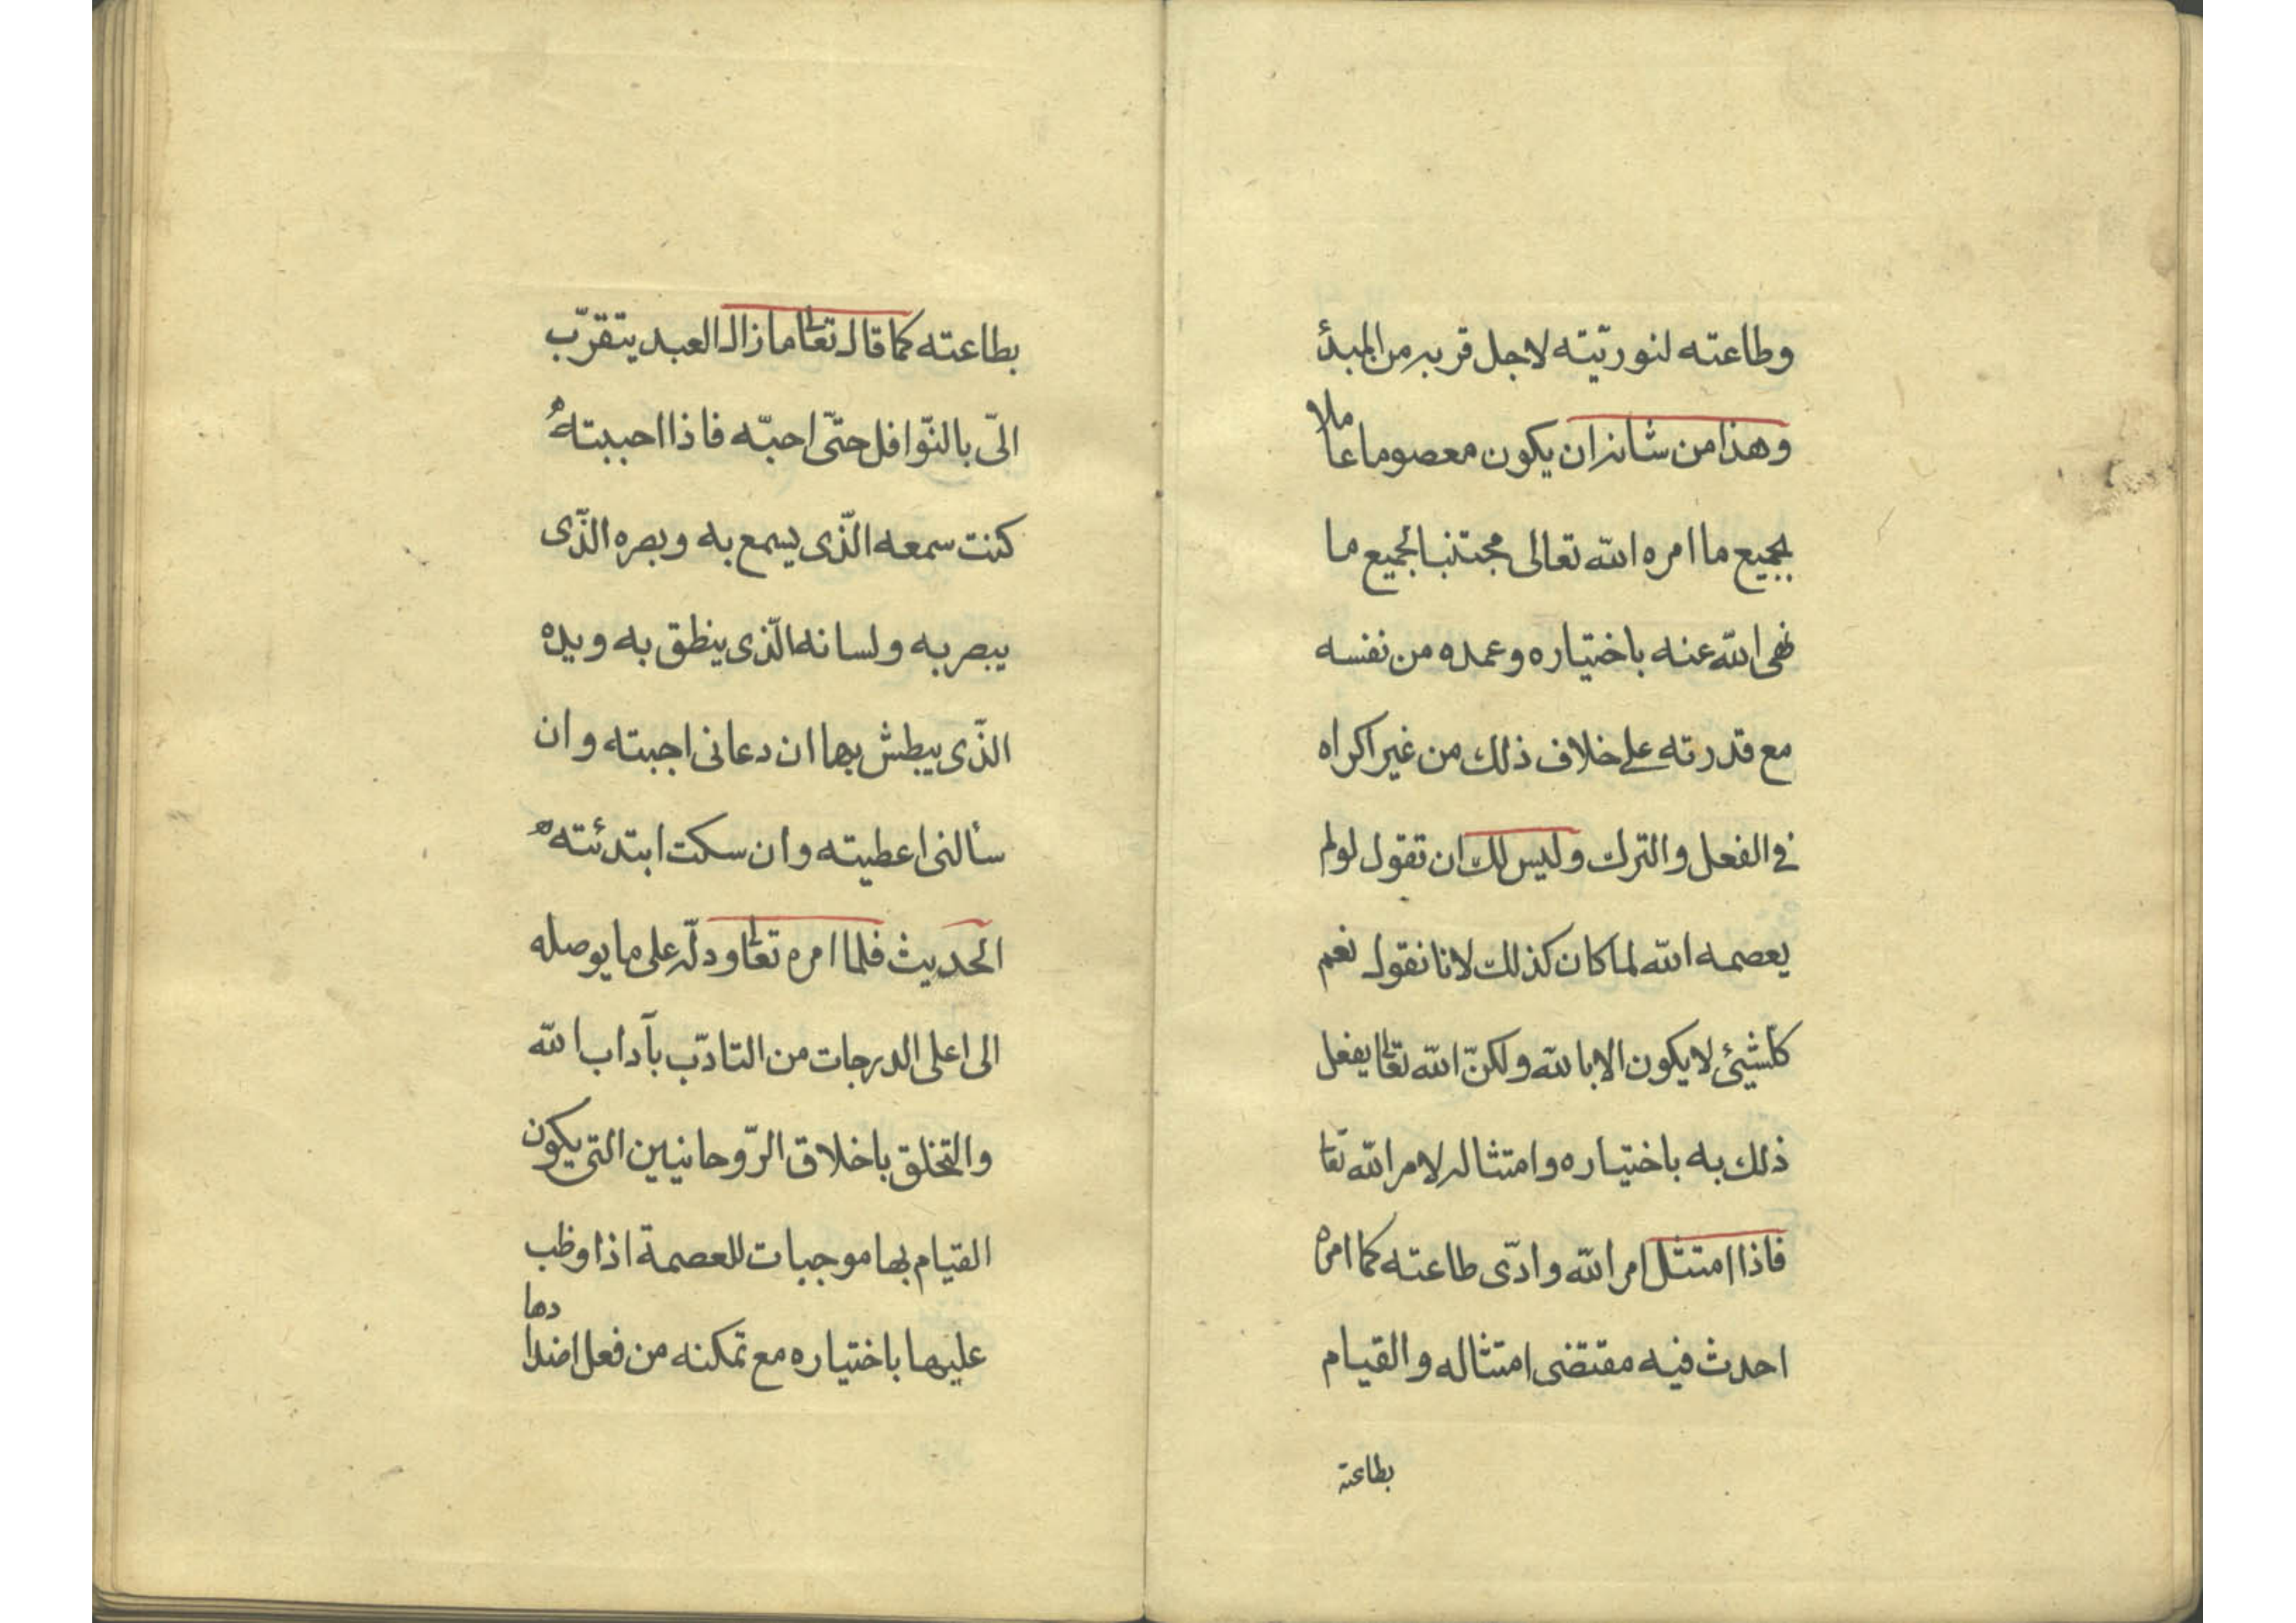 وطاعته لنوريّته لاجل قربه من المبدأ
وهذا من شانه ان يكون معصوما عاملا
بجميع ما امره الله تعالى مجتنبا لجميع ما
نهى الله عنه باختياره وعمده من نفسه
مع قدرته على خلاف ذلك من غير اكراه
في الفعل والترك وليس لك ان تقول لو لم
يعصمه الله لما كان كذلك لانا نقول نعم
كلشيئ لا يكون الا بالله ولكنّ الله تعالى يفعل
ذلك به باختياره وامتثاله لامر الله تعا
فاذا امتثل امر الله وادّى طاعته كما امره
احدث فيه مقتضى امتثاله والقيام
بطاعته
بطاعته كما قال تعالى ما زال العبد يتقرّب
الىّ بالنّوافل حتّى احبّه فاذا احببته
كنت سمعه الّذى يسمع به وبصره الّذى
يبصر به ولسانه الّذى ينطق به ويده
الّذى يبطش بها ان دعانى اجبته وان
سألنى اعطيته وان سكت ابتدئته
الحديث فلما امره تعالى ودلّه على ما يوصله
الى اعلى الدرجات من التادّب بآداب الله
والتخلق باخلاق الرّوحانيين التى يكون
القيام بها موجبات للعصمة اذا وظب
عليها باختياره مع تمكنه من فعل اضدادها